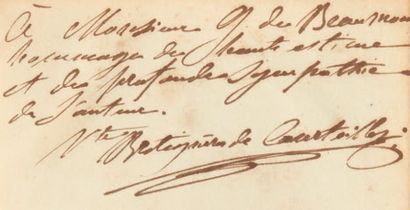 à Monsieur G. de Beaumont
hommage de haute estime
et de profonde sympathie
de l'auteur.
Vte Brétignères de Courteilles